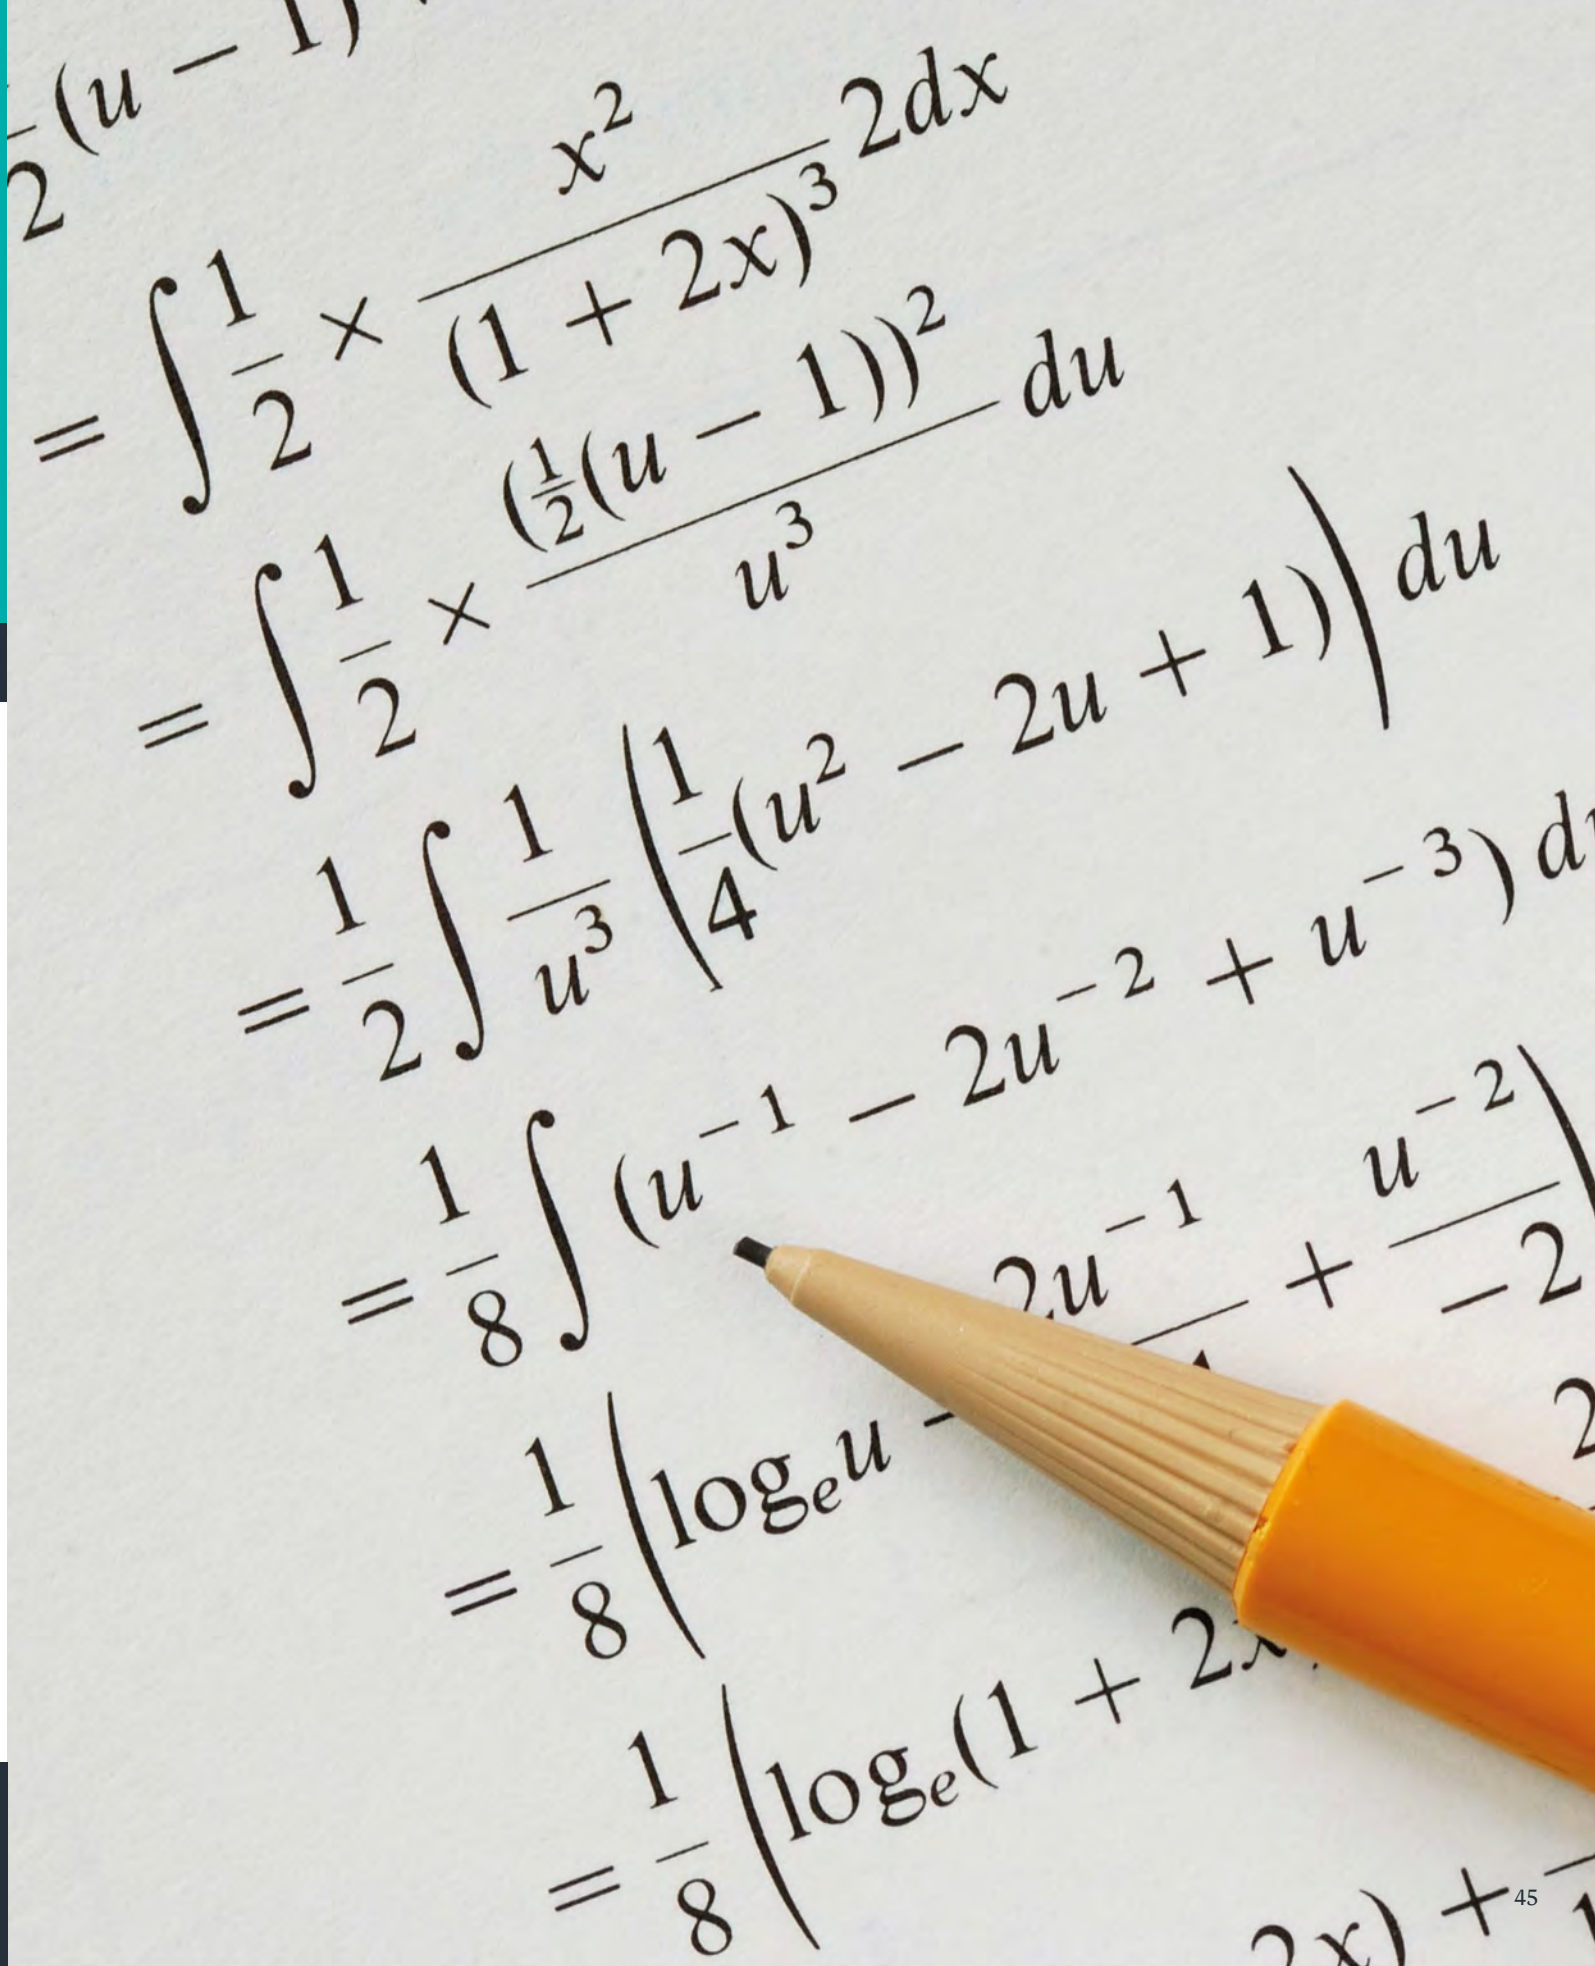 2 (u − 1)
= ∫ 1/2 × x²/(1 + 2x)³ 2dx
= ∫ 1/2 × (½(u − 1))²/u³ du
= 1/2 ∫ 1/u³ (1/4(u² − 2u + 1)) du
= 1/8 ∫ (u⁻¹ − 2u⁻² + u⁻³) d
= 1/8 (logₑu − 2u⁻¹ + u⁻²/−2)
= 1/8 (logₑ(1 + 2x 2
2x) +
45